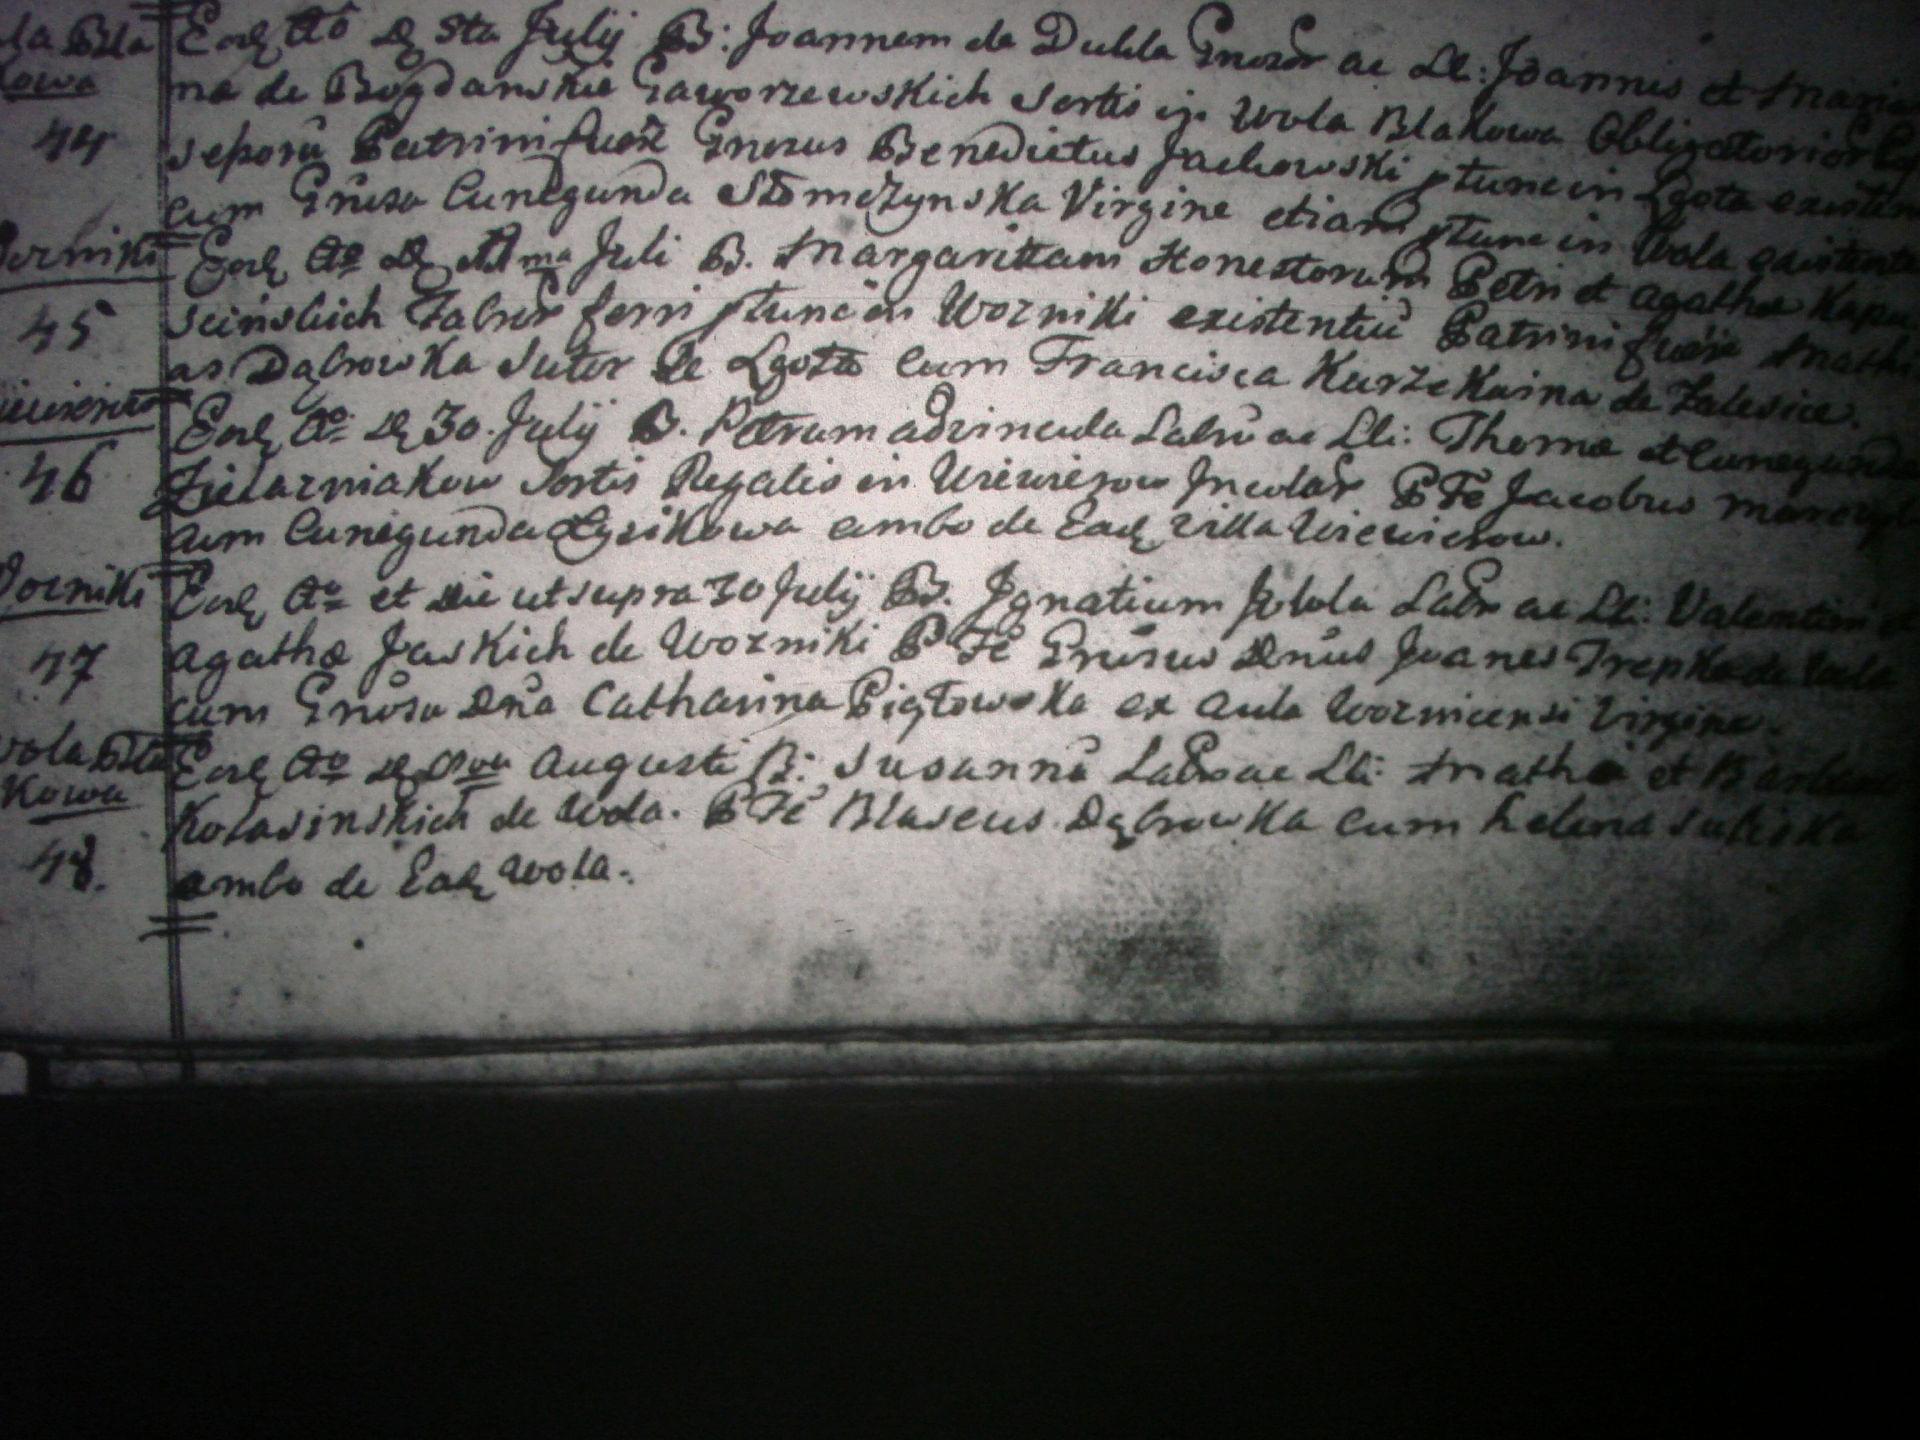 la Bla
kowa
44
Eod Ao D 5ta Julij B: Joannem de Dukla Gnosor ac LL: Joannis et Maria
na de Bogdanskie Gaworzewskich Sortis in Wola Blakowa Obligatorior
Patrini fuer Gnosus Benedictus Jackowski ptunc in Lgota existen
cum Gnosa Cunegunda Stomczynska Virgine etiam ptunc in Wola existente
Worniki
45
Eod Ao D ma Juli B. Margarittam Honestorum Petri et Agatha Kapu
scinskich Fabror ferri ptunc in Wozniki existentiu Patrini fuer Mathi
as Dąbrowka Sutor de Lgota cum Francisca Karzekaina de Zalesice.
Wiewierow
46
Eod Ao D 30. Julij B. Petrum ad vincula Labo ac LLi: Thoma et Cunegunda
Zielarniakow Sortis Regalis in Wiewierow Incolar P Fe Jacobus
cum Cunegunda Łysikowa ambo de Ead Villa Wiewierow.
Wozniki
47
Eod Ao et Die ut supra 30 Julij B. Ignatium Labo ac LLi: Valentini et
Agatha Jaskich de Wozniki P Fe Gnosus Dnus Joanes Trepka de Wola
cum Gnosa Dna Catharina Piątowska ex Aula Woznicensi Virgine.
Wola Bla
kowa
48.
Eod Ao D Augusti B: Susannā Labo ac LLi: Mathia et Barbara
Kolasinskich de Wola. P Fe Blaseus Dąbrowka cum Helena
ambo de Ead Wola.